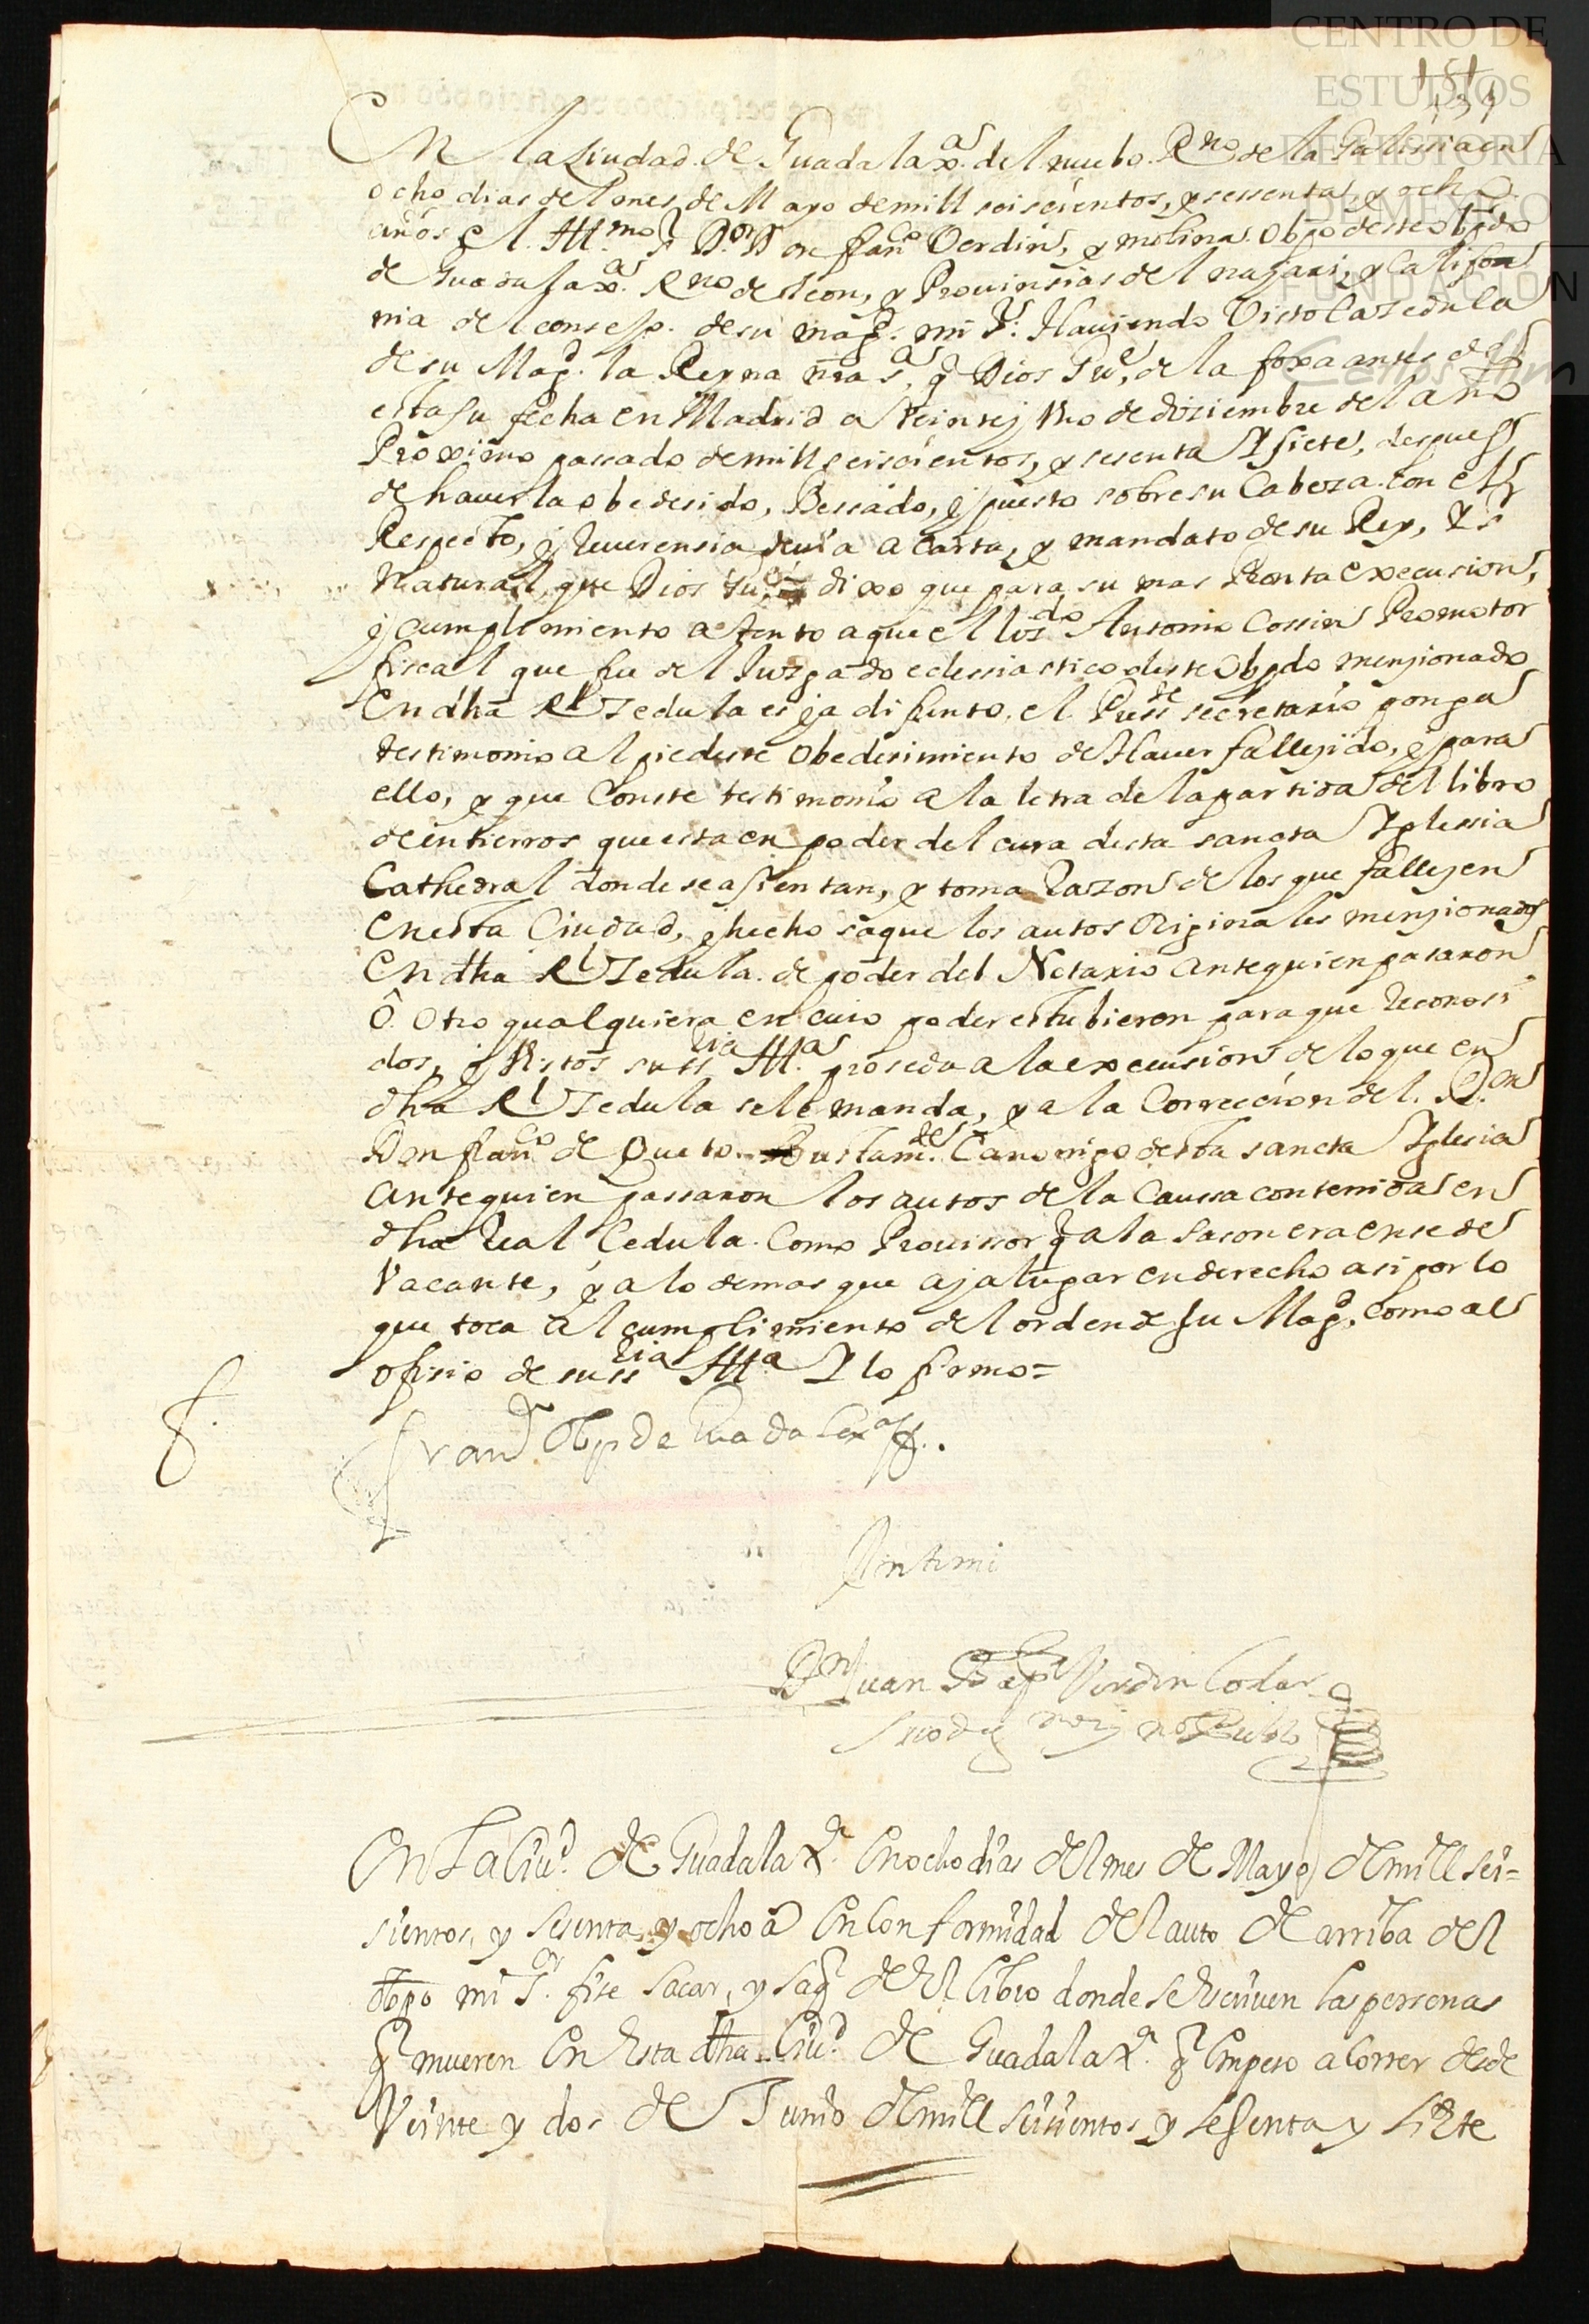 CENTRO DE
ESTUDIOS
DE HISTORIA
DE MÉXICO
FUNDACIÓN
Carlos Slim
En la Ciudad de Guadalax.ª del nuebo Rno de la Galissia en
ocho dias del mes de Mayo de mill seiscientos, y sessenta, y ocho
años el Ill.mo S.r D.or Don fran.co Verdin, y molina Obpo deste obpdo
de Guadalax.ª Rno de leon, y Prouinsias del nayari, y Califor
nia del consejo de su mag.d mi S.r Hauiendo Visto la zedula
de su Mag.d la Reyna nrã s.ª q Dios Gu.e de la foxa antes de
esta su fecha en Madrid a Veinte y Uno de diziembre del año
Proximo passado de mill seiscientos, y sesenta Y siete, despues
de hauerla obedesido, Bessado, y puesto sobre su Cabeza con el
Respecto, y Reuerensia deuida a Carta, y mandato de su Rey, Y S.r
Natural, que Dios Gu.e dixo que para su mas Pronta execusion,
y cumplimiento atento a que el liz.do Antonio Cossin Promotor
fiscal que fue del Juzgado eclessiastico deste Obpdo mensionado
En dha Rl Zedula es ya difunto, el Press.te secretario ponga
testimonio al pie deste obedesimiento de Hauer fallesido, y para
ello, y que Conste testimonio a la letra de la partida del libro
de entierros que esta en poder del cura desta sancta Yglessia
Cathedral donde se asientan, y toma Razon de los que fallesen
en esta Ciudad, y hecho saque los autos Originales mensionados
En dha Rl Zedula de poder del Notario ante quien pasaron
Ô Otro qualquiera en cuio poder estubieron para que Reconosi
dos, y Vistos su ss.ria Ill.ª proseda a la execusion de lo que en
dha Rl Zedula se le manda, y a la Correccion del D.or
Don fran.co de Queto Bustam.te Canonigo desta sancta Yglesia
ante quien passaron los autos de la Caussa contenida en
dha Real Cedula Como Prouissor q a la sason era en sede
Vacante, y a lo demas que aja lugar en derecho asi por lo
que toca al cumplimiento del orden de su Mag.d como al
ofisio de su ss.ria Ill.ª Y lo firmo=
Fran.co Obpo de Guadalax.ª
Ante mi
D.n Juan Bap.ta Verdin
En la Ciu.d de Guadalax.ª En ocho dias del mes de Mayo de mill seis=
sientos, y sesenta y ocho a.s En Conformidad del auto de arriba del
Obpo mi S.or fise sacar, y saq de el libro donde se escriuen las perssonas
q mueren En Esta dha Ciu.d de Guadalax.ª q Empeso a Correr desde
Veinte y dos de Junio de mill seisientos y sesenta y siete